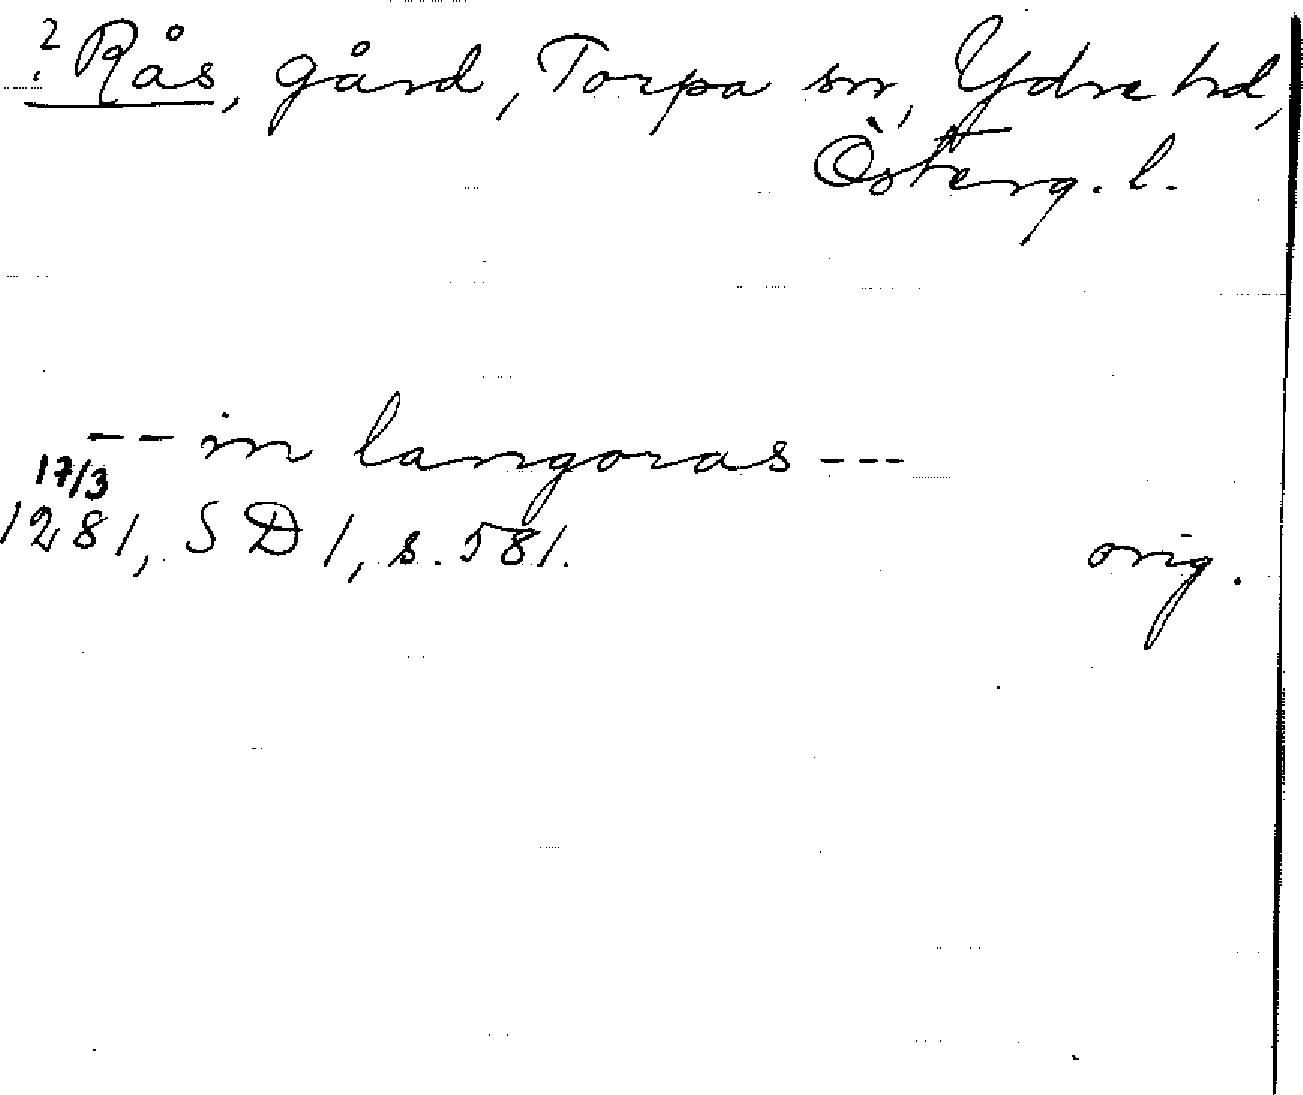 ? Rås, gård, Torpa sn, Ydre hd,
Österg. l.
-- in langoras ---
17/3
1281, SD 1, s. 581.
orig.